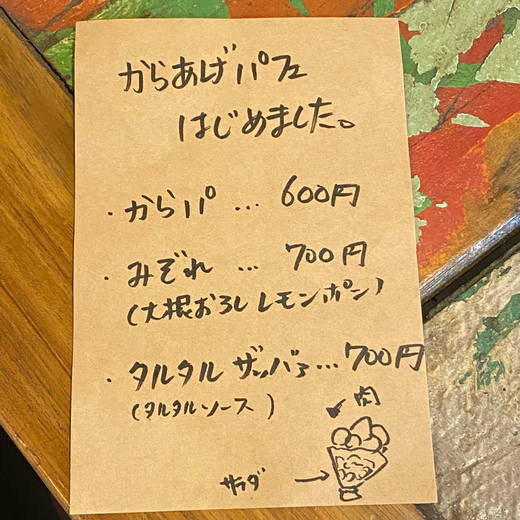 からあげパフェ
はじめました。
・からパ … 600円
・みぞれ … 700円
(大根おろしレモンポン)
・タルタル ザッパァ…700円
(タルタルソース)
肉
サラダ